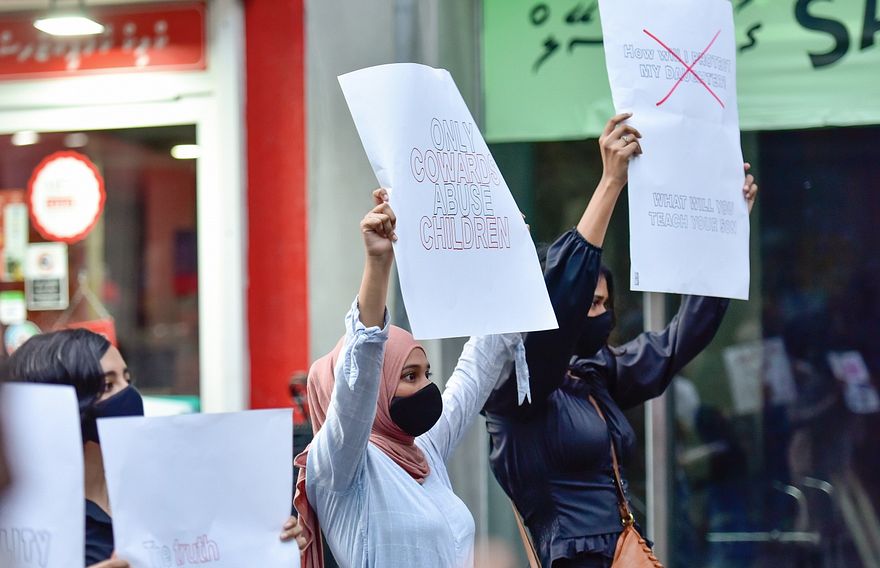 SA
HOW WILL I PROTECT
MY DAUGHTER
WHAT WILL YOU
TEACH YOUR SON
ONLY
COWARDS
ABUSE
CHILDREN
The truth
LITY